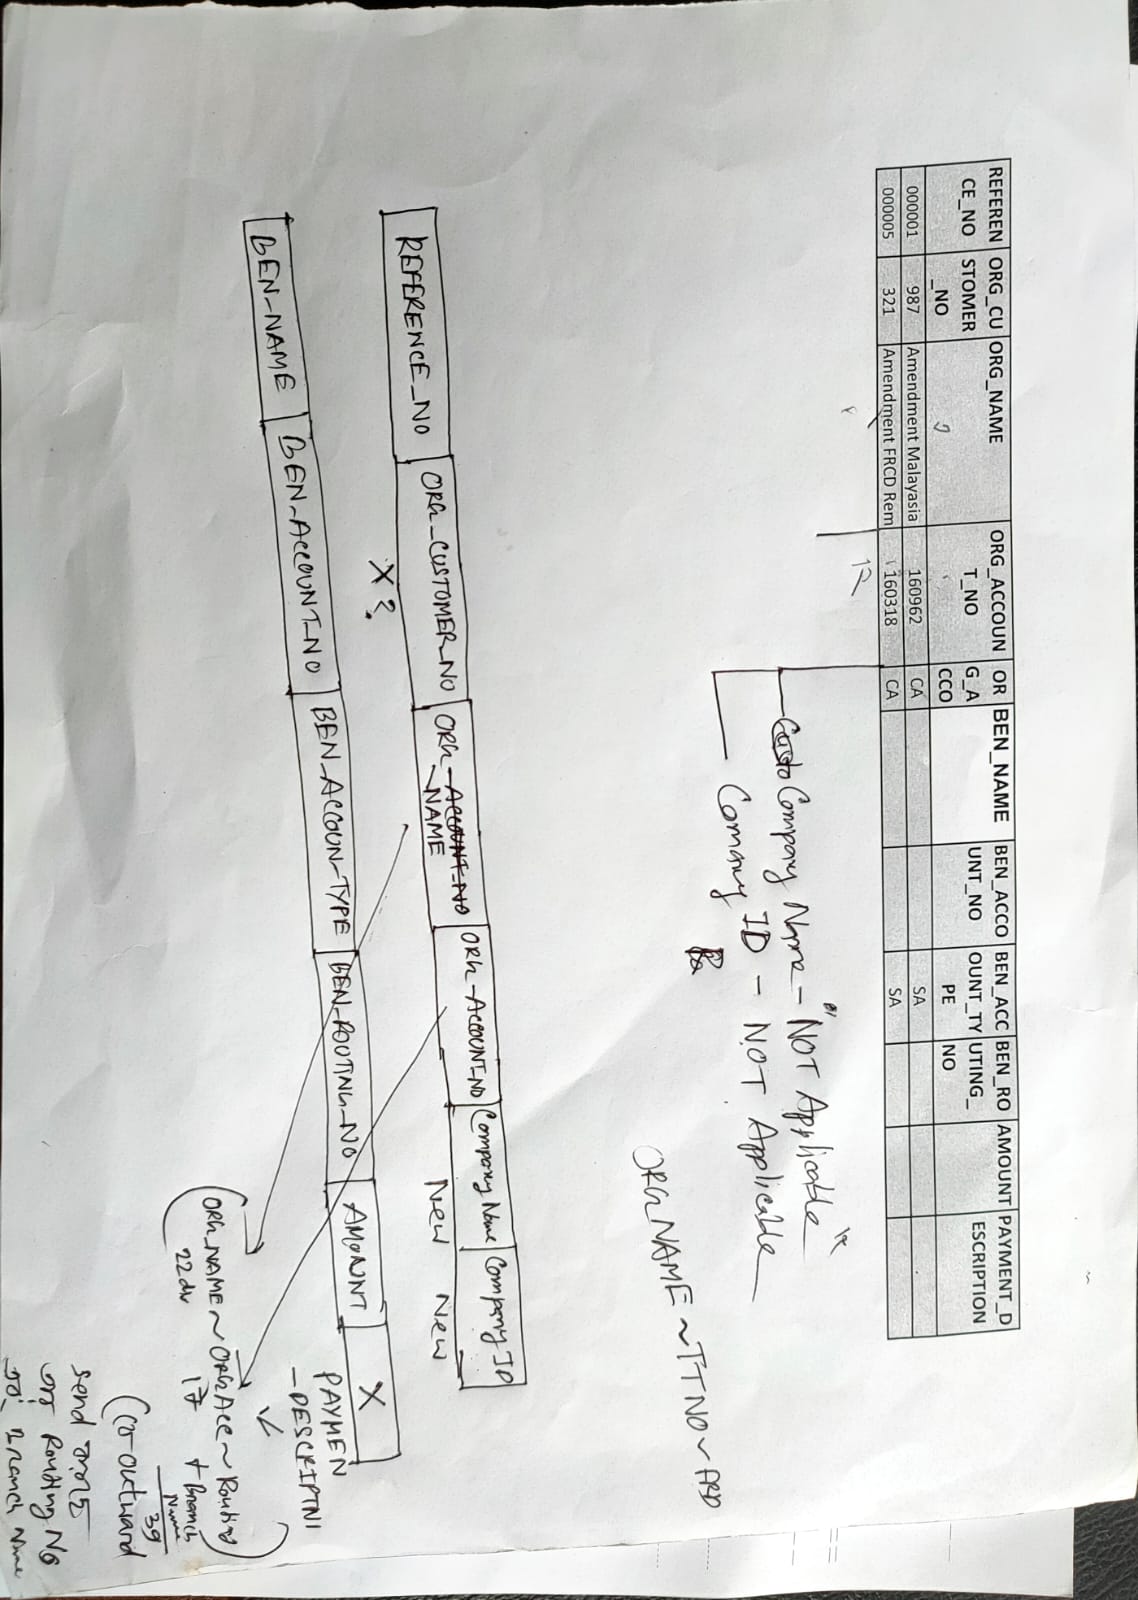 REFERENCE_NO ORG_CUSTOMER_NO ORG_NAME ORG_ACCOUNT_NO ORG_ACCO BEN_NAME BEN_ACCOUNT_NO BEN_ACCOUNT_TYPE BEN_ROUTING_NO AMOUNT PAYMENT_DESCRIPTION
000001 987 Amendment Malayasia 160962 CA SA
000005 321 Amendment FRCD Rem 160318 CA SA
12
Custo Company Name - "NOT Applicable"
Comany ID - NOT Applicable
ORG NAME ~ TT NO ~
REFERENCE_NO ORG_CUSTOMER_NO ORG_ACCOUNT_NO ORG_ACCOUNT_NO Company Name Company ID
_NAME
X ? New New
BEN_NAME BEN_ACCOUNT_NO BEN_ACCOUN_TYPE BEN_ROUTING_NO AMOUNT X
PAYMEN
_DESCRIPTNI
(ORG_NAME ~ ORG Acc ~ Routing)
22 17 + Branch
Name
39
outward
send
Routing No
Branch Name